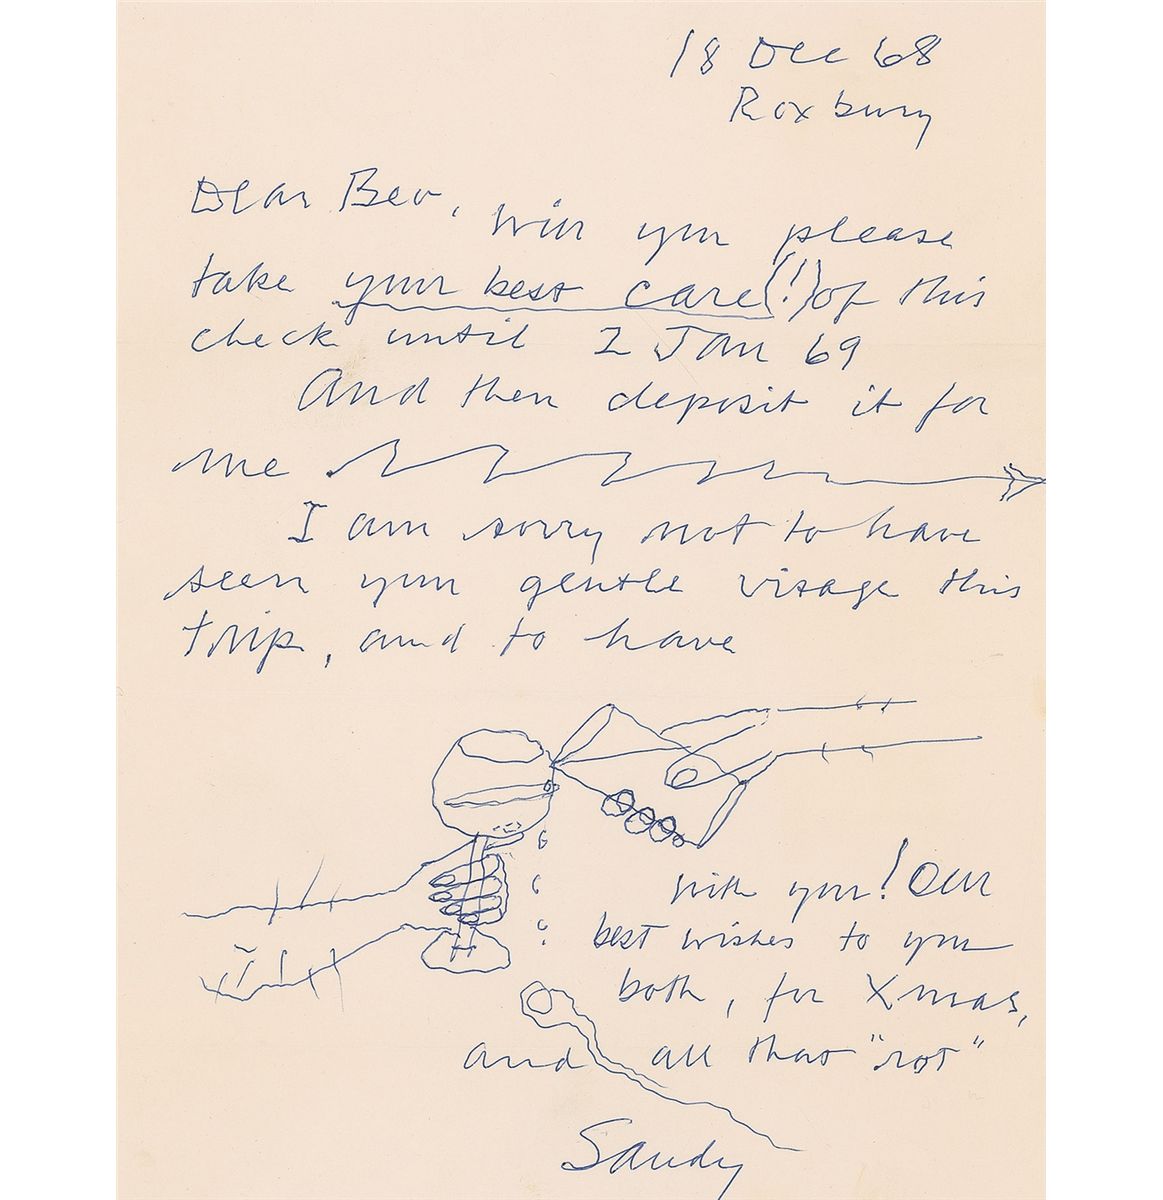 18 Dec 68
Roxbury
Dear Bev, will you please
take your best care(!) of this
check until 2 Jan 69
And then deposit it for
me
I am sorry not to have
seen your gentle visage this
trip, and to have
with you! Our
best wishes to you
both, for Xmas,
and all that "rot"
Sandy